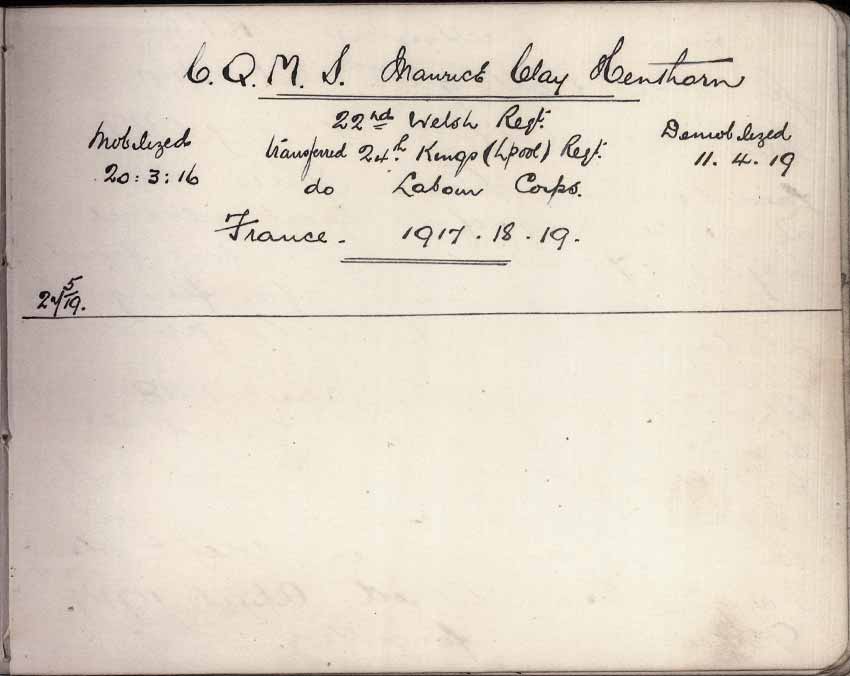 C. Q. M. S. Maurice Clay Henthorn
22nd Welsh Regt.
Mobilized
transferred 24th Kings (Lpool) Regt.
Demobilized
20:3:16
do Labour Corps.
11. 4. 19
France. 1917. 18. 19.
5/19.